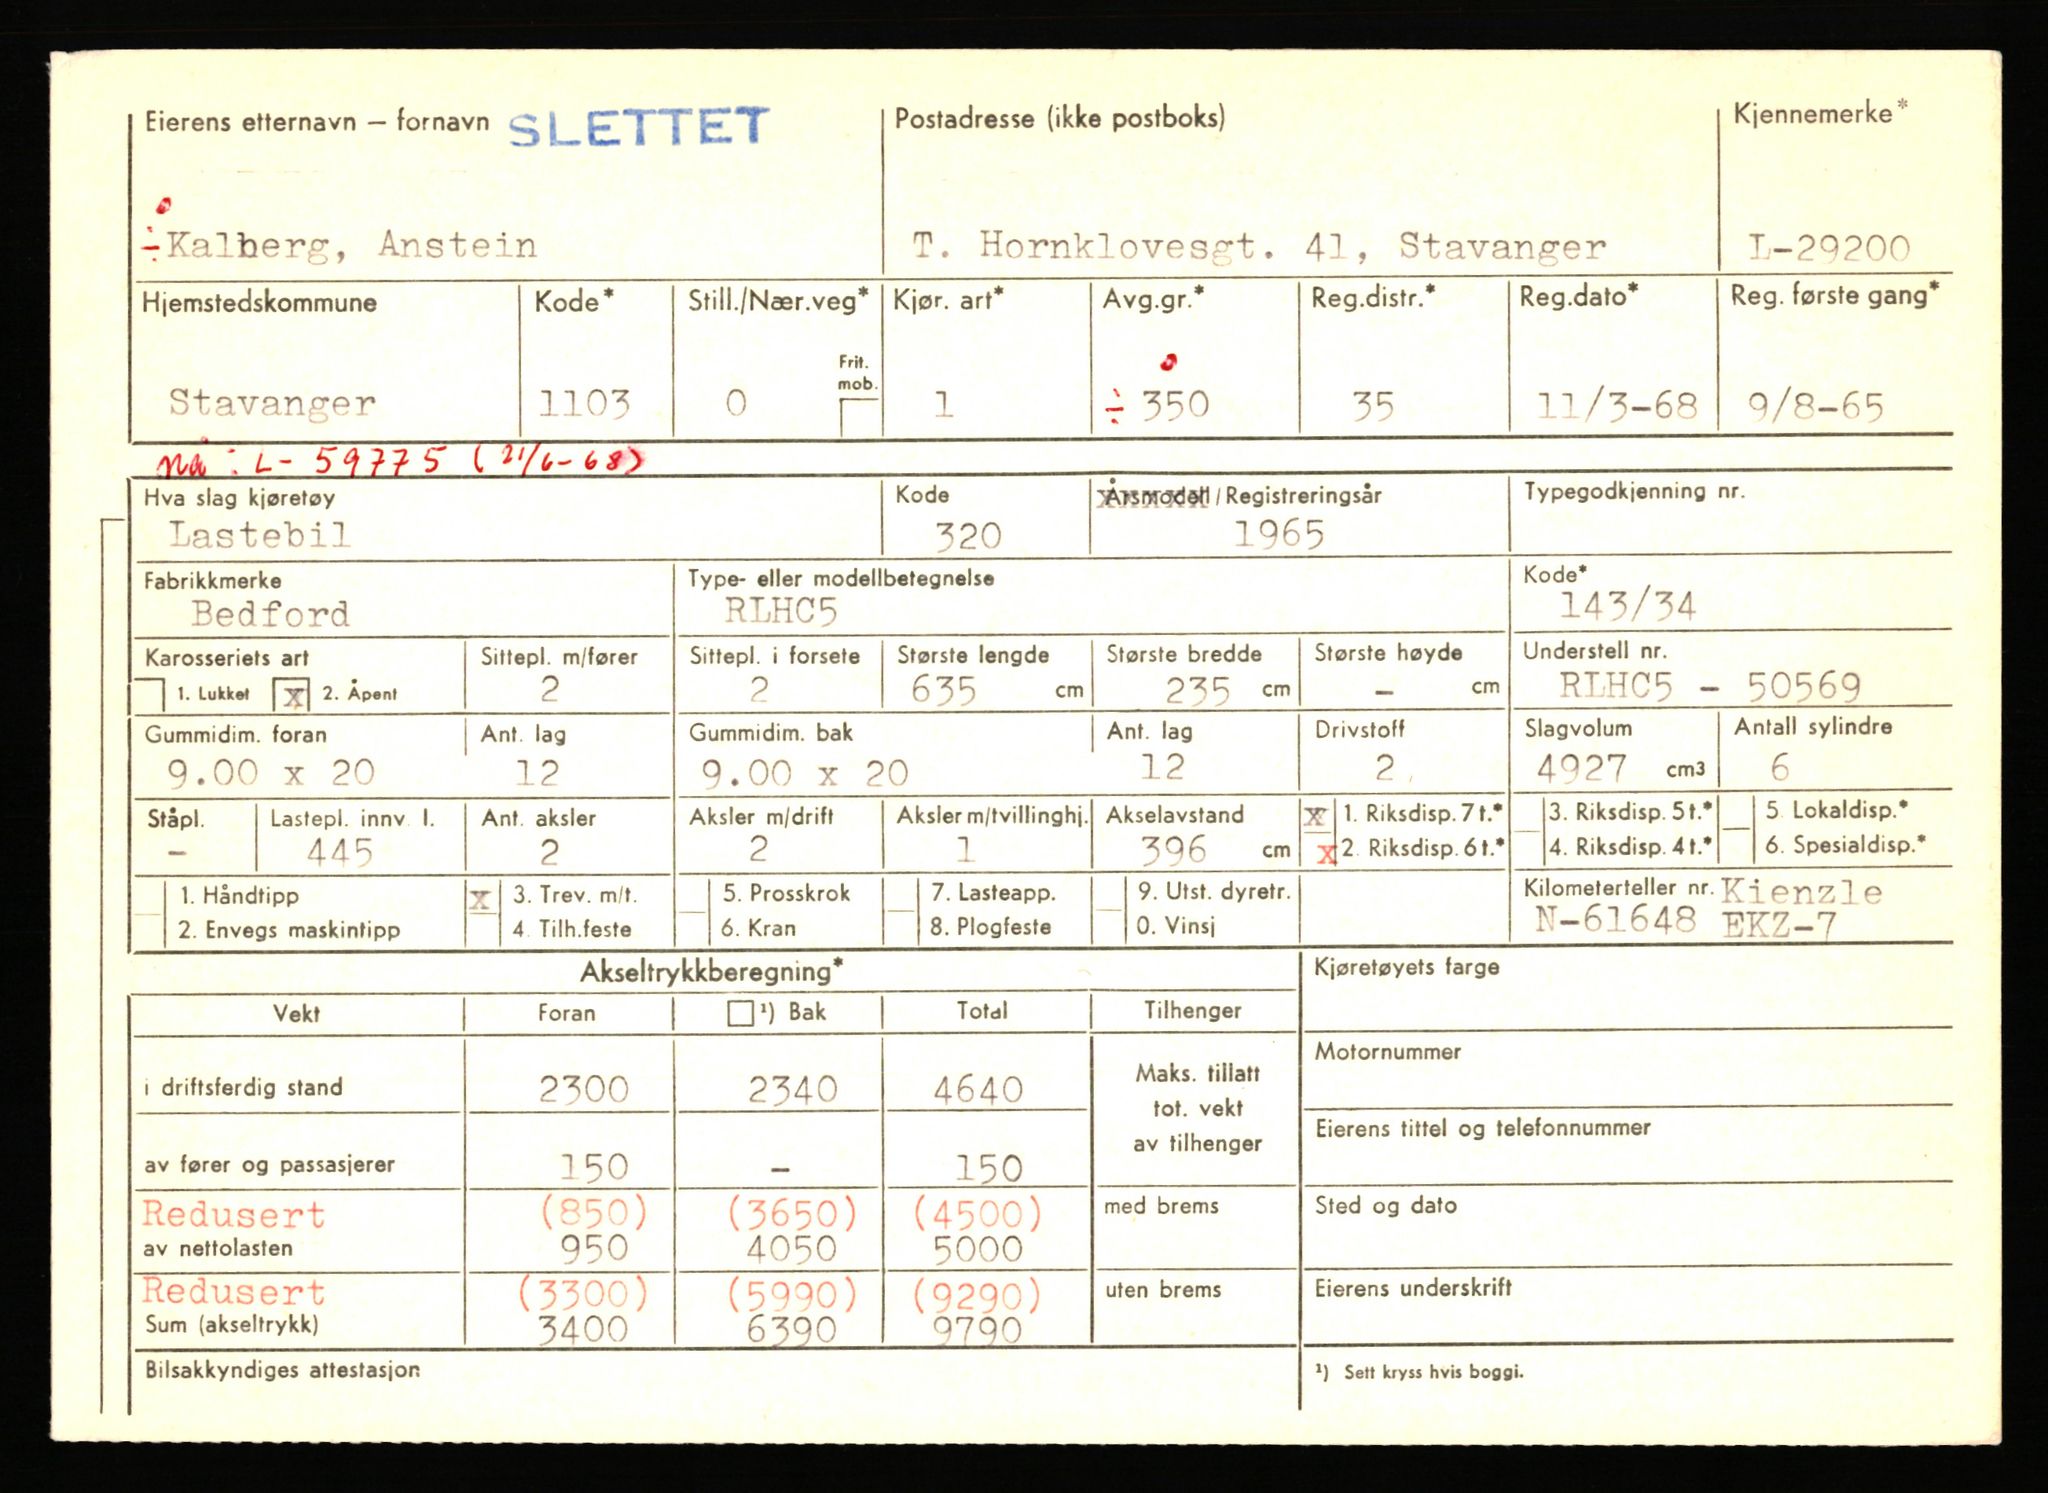 Eierens etternavn – fornavn SLETTET Postadresse (ikke postboks) Kjennemerke*
÷ Kalberg, Anstein T. Hornklovesgt. 41, Stavanger L-29200
Hjemstedskommune Kode* Still./Nær.veg* Kjør. art* Avg.gr.* Reg.distr.* Reg.dato* Reg. første gang*
Frit.
mob.
Stavanger 1103 0 1 ÷ 350 35 11/3-68 9/8-65
nå: L- 59775 (21/6-68)
Hva slag kjøretøy Kode Årsmodell/Registreringsår Typegodkjenning nr.
Lastebil 320 1965
Fabrikkmerke Type- eller modellbetegnelse Kode*
Bedford RLHC5 143/34
Karosseriets art Sittepl. m/fører Sittepl. i forsete Største lengde Største bredde Største høyde Understell nr.
1. Lukket X 2. Åpent 2 2 635 cm 235 cm - cm RLHC5 - 50569
Gummidim. foran Ant. lag Gummidim. bak Ant. lag Drivstoff Slagvolum Antall sylindre
9.00 x 20 12 9.00 x 20 12 2 4927 cm3 6
Ståpl. Lastepl. innv. l. Ant. aksler Aksler m/drift Aksler m/tvillinghj. Akselavstand X 1. Riksdisp. 7 t.* 3. Riksdisp. 5 t.* 5. Lokaldisp.*
- 445 2 2 1 396 cm X 2. Riksdisp. 6 t.* 4. Riksdisp. 4 t.* 6. Spesialdisp.*
1. Håndtipp X 3. Trev. m/t. 5. Prosskrok 7. Lasteapp. 9. Utst. dyretr. Kilometerteller nr. Kienzle
2. Envegs maskintipp 4. Tilh.feste 6. Kran 8. Plogfeste 0. Vinsj N-61648 EKZ-7
Akseltrykkberegning* Kjøretøyets farge
Vekt Foran ¹) Bak Total Tilhenger
Motornummer
i driftsferdig stand 2300 2340 4640 Maks. tillatt
tot. vekt
av tilhenger
Eierens tittel og telefonnummer
av fører og passasjerer 150 - 150
Redusert (850) (3650) (4500) med brems Sted og dato
av nettolasten 950 4050 5000
Redusert (3300) (5990) (9290) uten brems Eierens underskrift
Sum (akseltrykk) 3400 6390 9790
Bilsakkyndiges attestasjon ¹) Sett kryss hvis boggi.